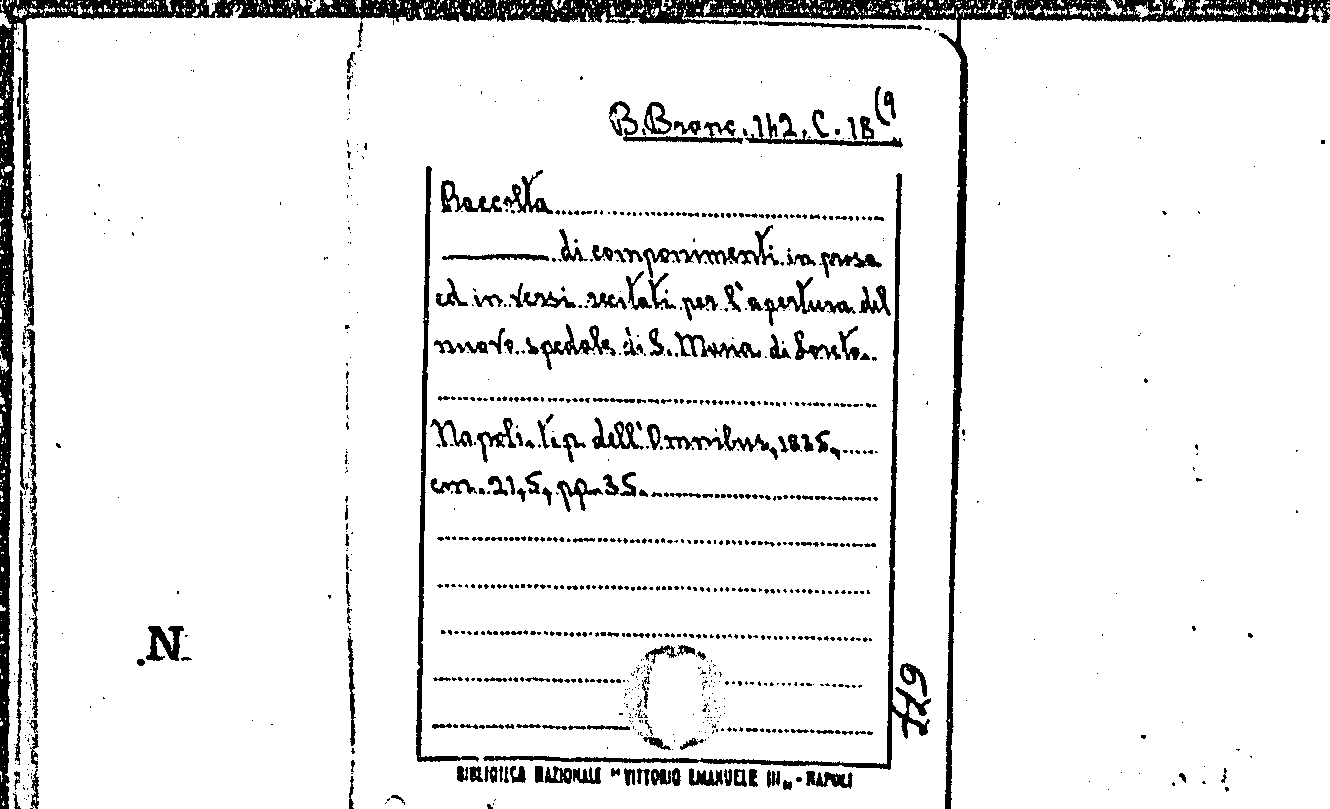 B. Branc. 142. C. 18 (9
Raccolta
di componimenti in prosa
ed in versi recitati per l'apertura del
nuovo spedale di S. Maria di Loreto.
Napoli. tip. dell'Omnibus, 1835,
cm. 21,5, pp. 35.
N.
BIBLIOTECA NAZIONALE "VITTORIO EMANUELE III" - NAPOLI